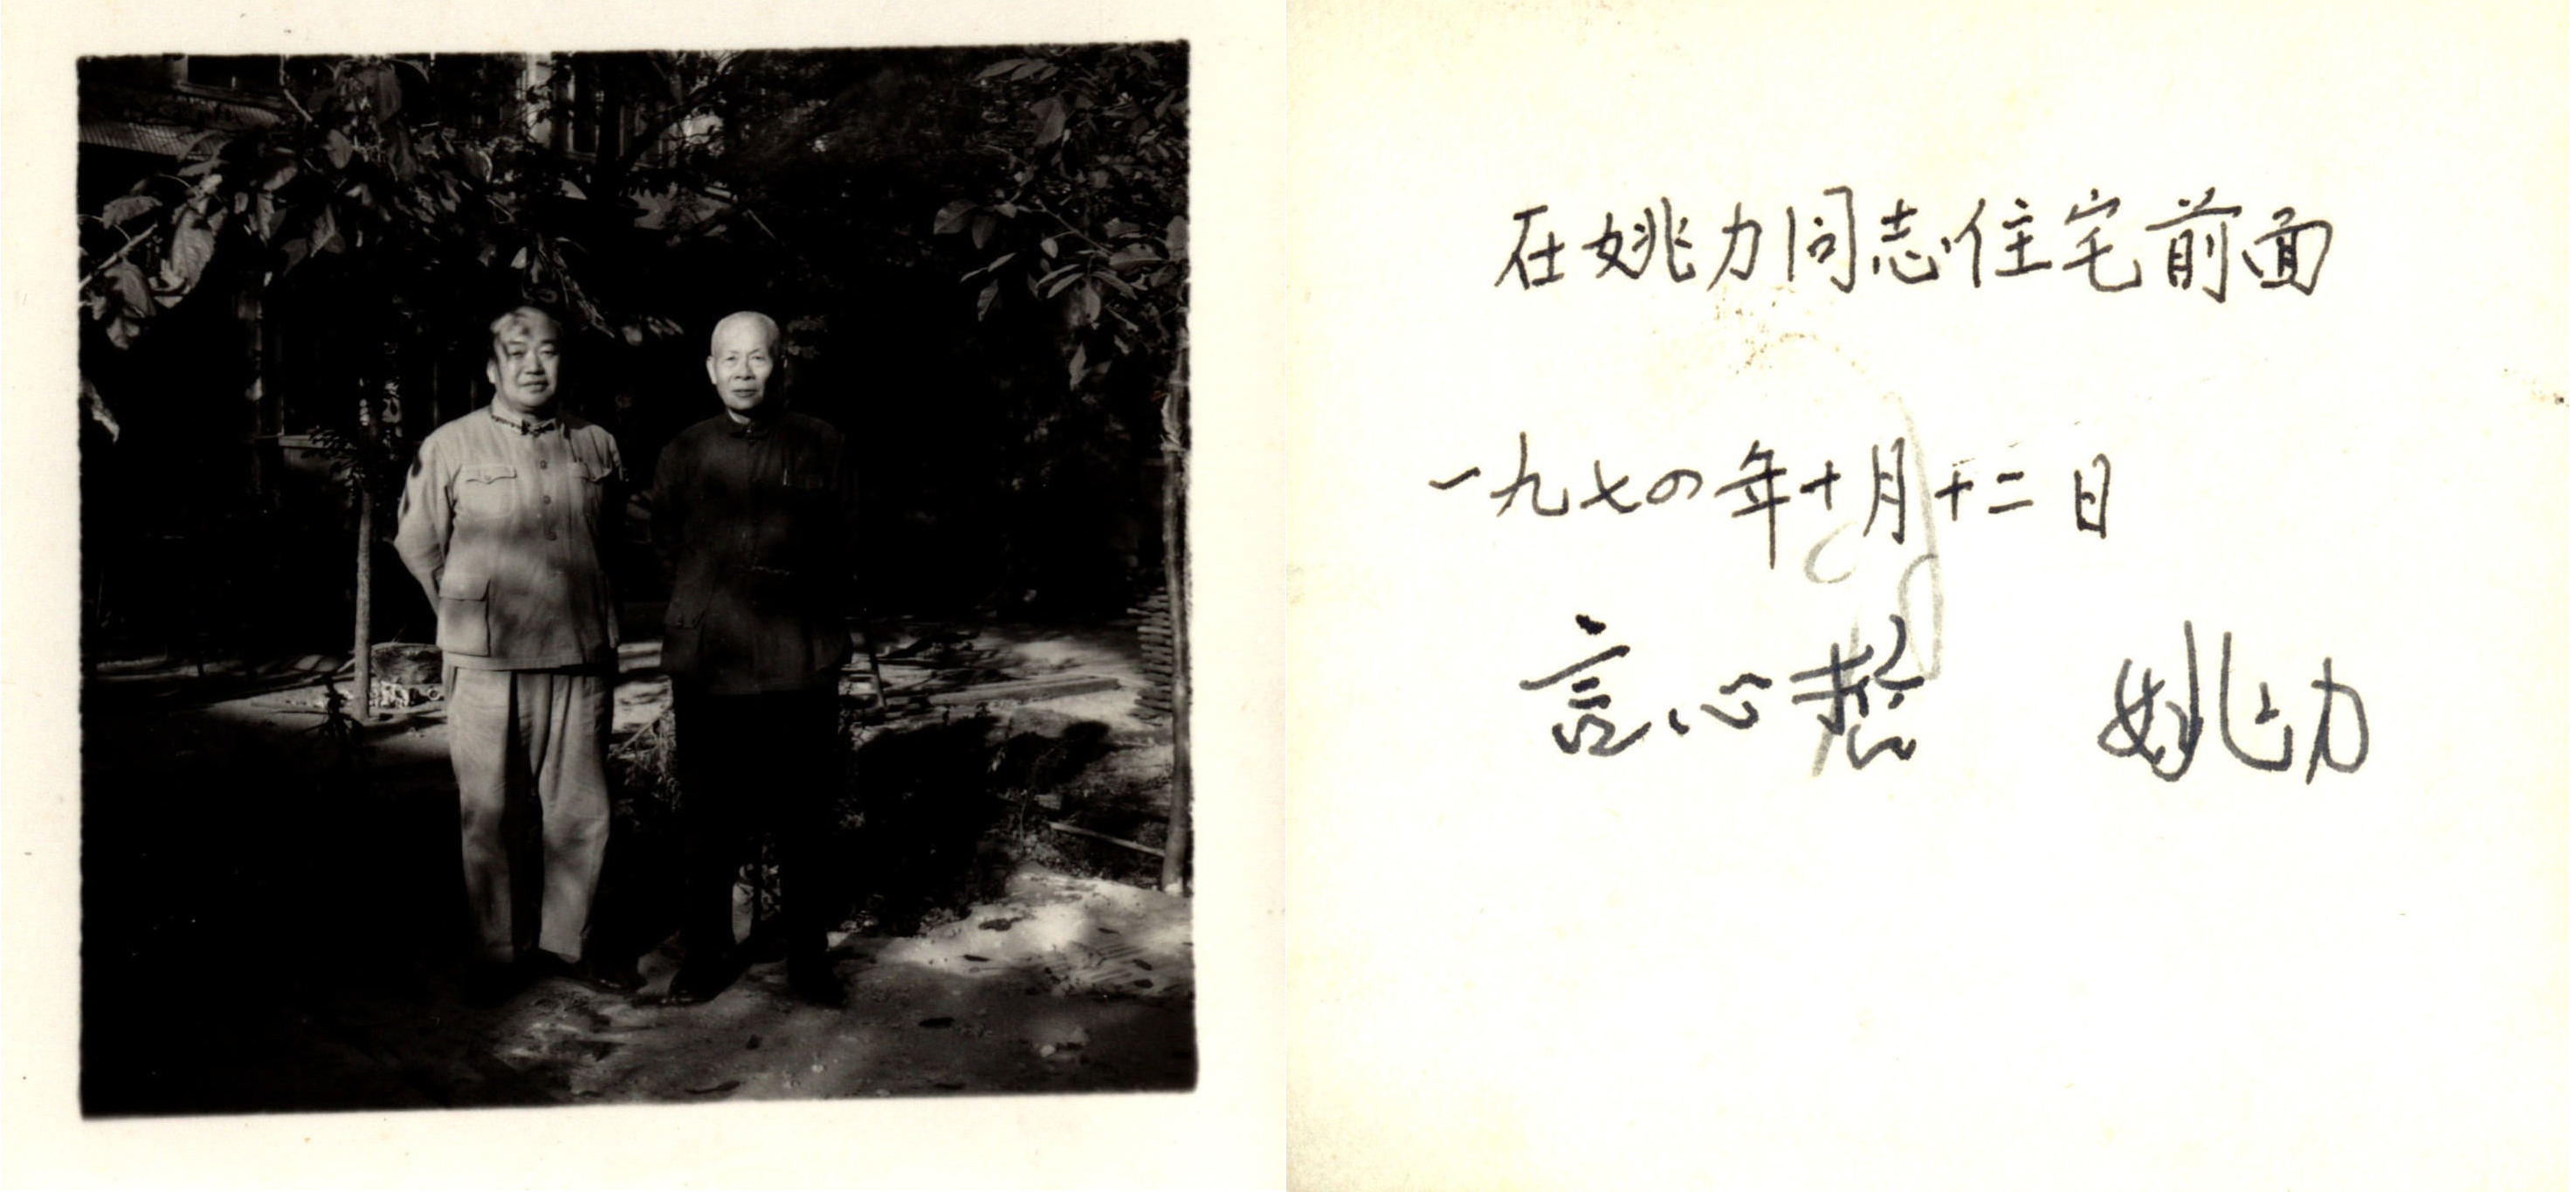 在姚力同志住宅前面
一九七四年十月十二日
言心哲 姚力